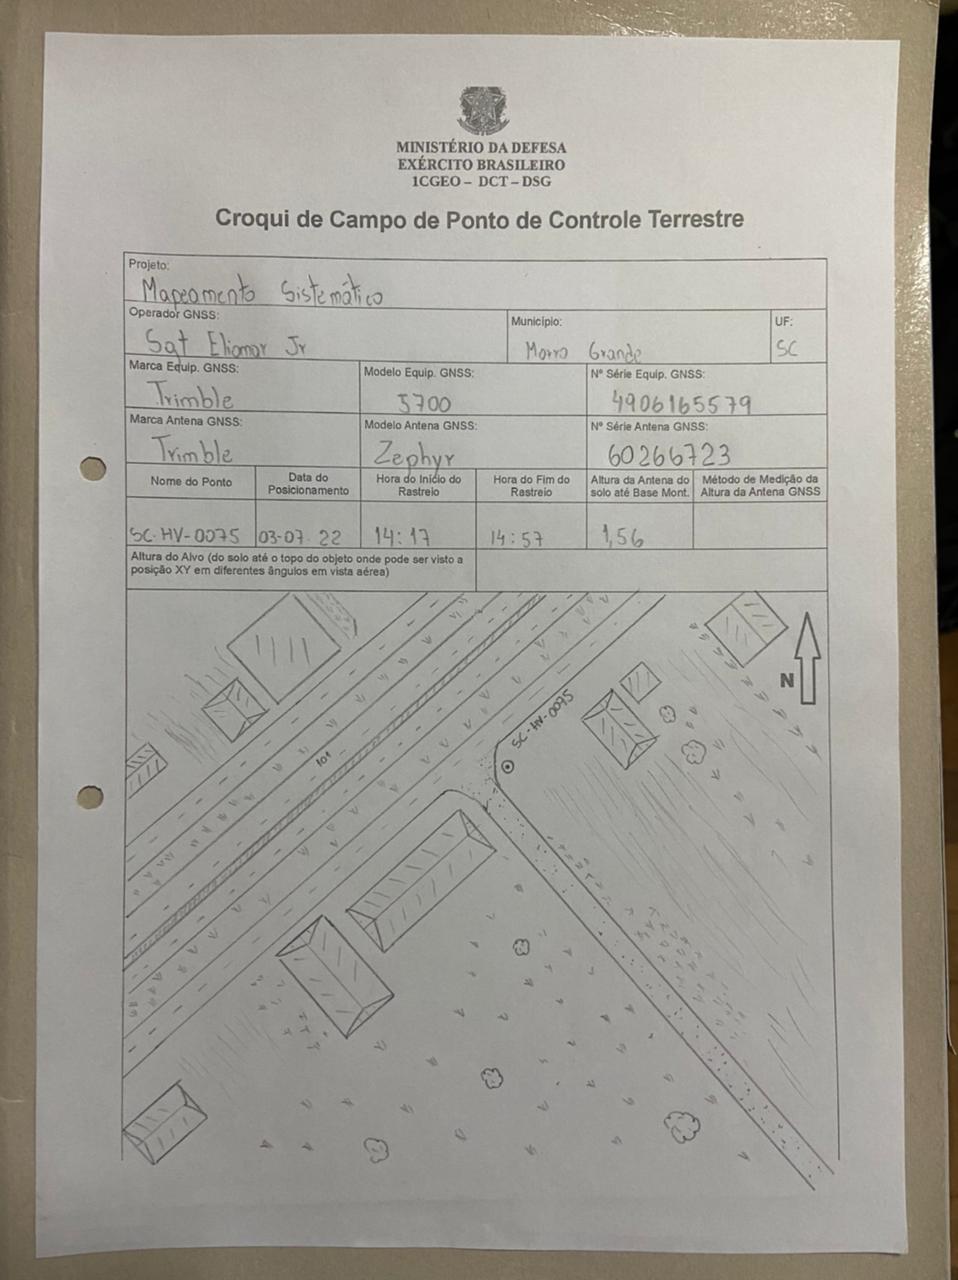 MINISTÉRIO DA DEFESA
EXÉRCITO BRASILEIRO
1CGEO – DCT – DSG
Croqui de Campo de Ponto de Controle Terrestre
Projeto:
Mapeamento Sistemático
Operador GNSS:
Sgt Eliomar Jr
Município:
Morro Grande
UF:
SC
Marca Equip. GNSS:
Trimble
Modelo Equip. GNSS:
5700
Nº Série Equip. GNSS:
4906165579
Marca Antena GNSS:
Trimble
Modelo Antena GNSS:
Zephyr
Nº Série Antena GNSS:
60266723
Nome do Ponto
Data do
Posicionamento
Hora do Início do
Rastreio
Hora do Fim do
Rastreio
Altura da Antena do
solo até Base Mont.
Método de Medição da
Altura da Antena GNSS
SC-HV-0075
03-07.22
14:17
14:57
1,56
Altura do Alvo (do solo até o topo do objeto onde pode ser visto a
posição XY em diferentes ângulos em vista aérea)
N
SC-HV-0075
101